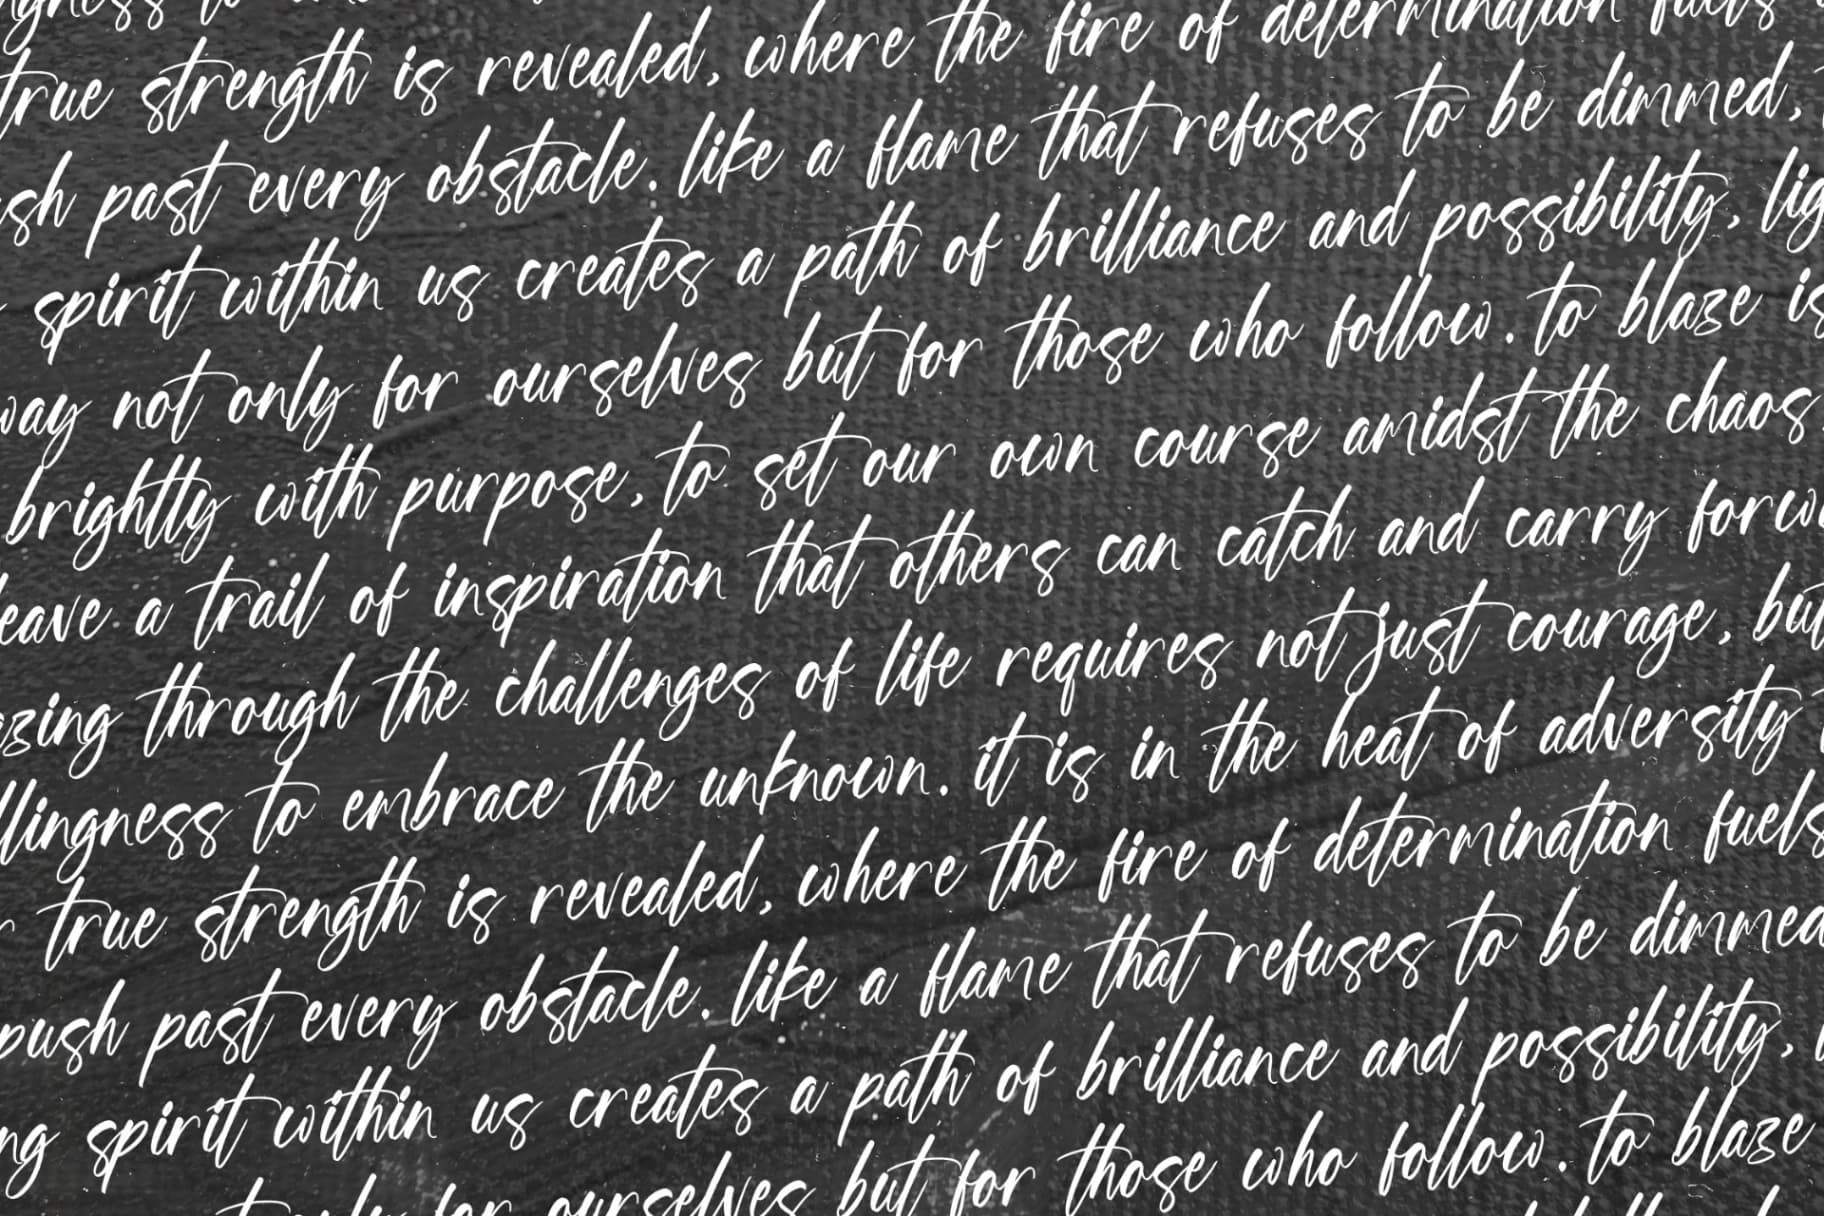 true strength is revealed, where the fire of determination fuels
past every obstacle. like a flame that refuses to be dimmed,
spirit within us creates a path of brilliance and possibility,
way not only for ourselves but for those who follow. to blaze is
brightly with purpose, to set our own course amidst the chaos
leave a trail of inspiration that others can catch and carry
through the challenges of life requires not just courage, but
to embrace the unknown. it is in the heat of adversity
true strength is revealed, where the fire of determination fuels
push past every obstacle. like a flame that refuses to be dimmed
spirit within us creates a path of brilliance and possibility,
for ourselves but for those who follow. to blaze